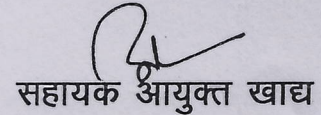 सहायक आयुक्त खाद्य